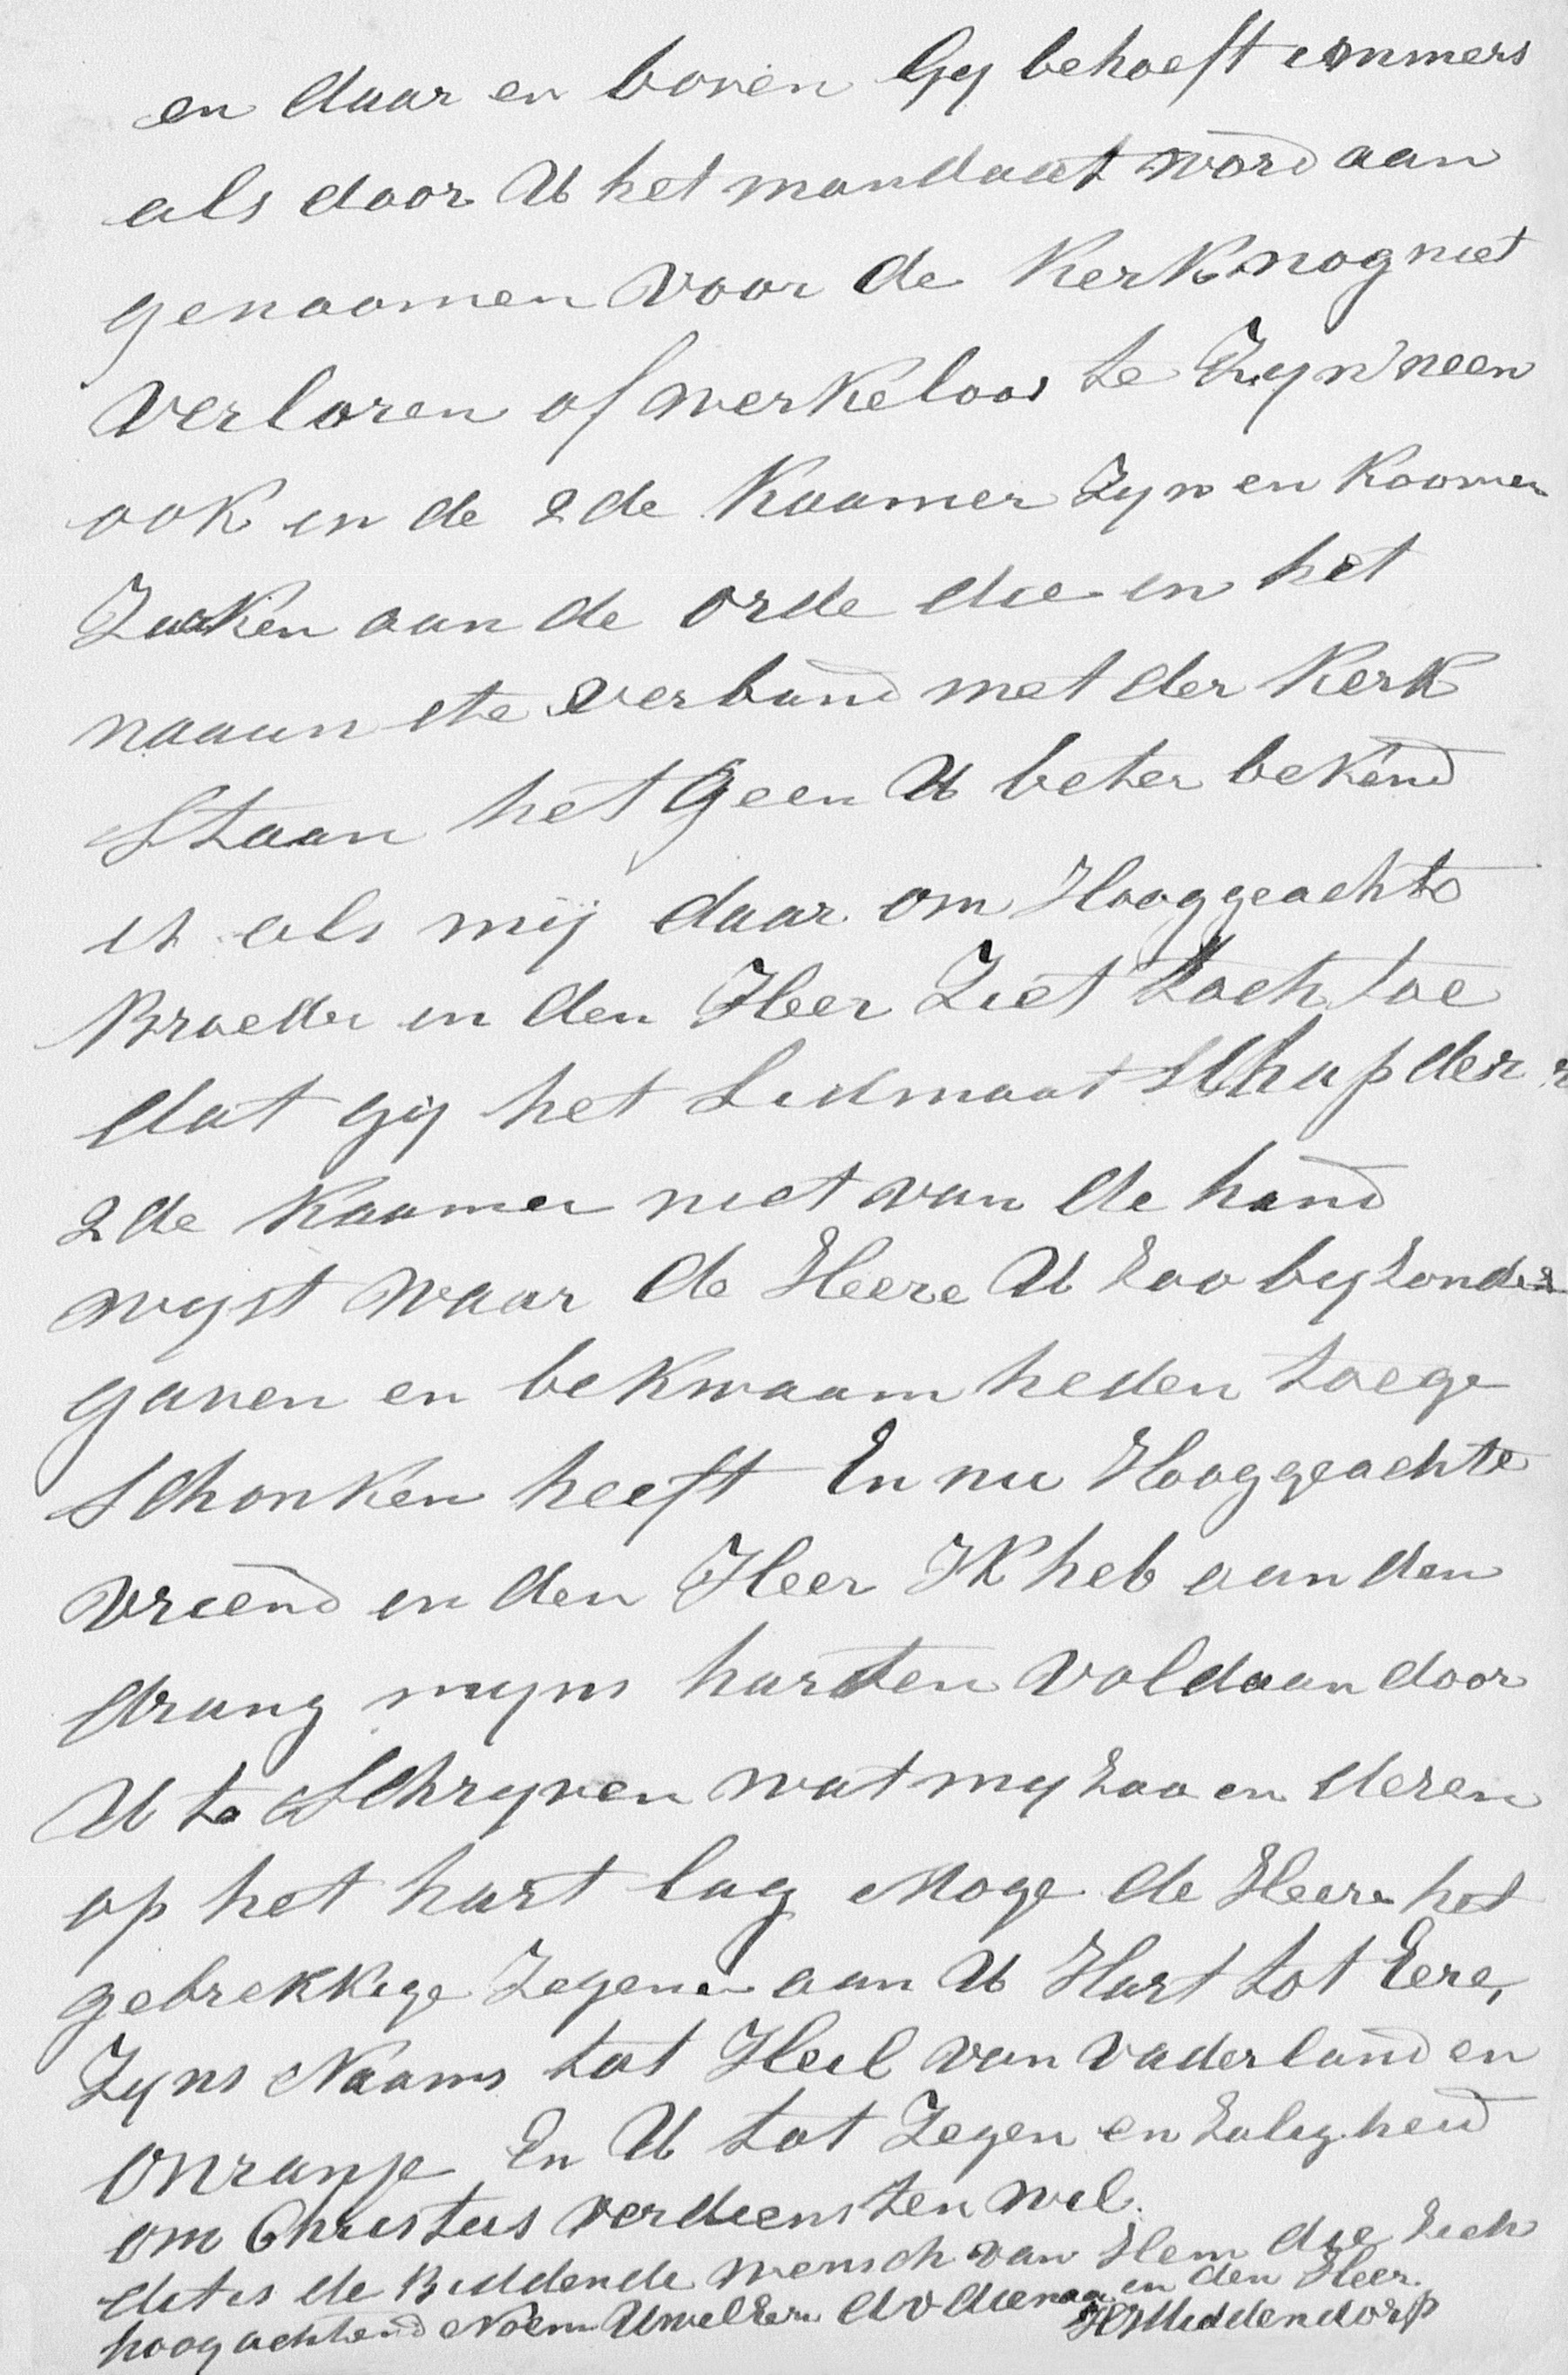 en daar en boven Gy behoeft immers
als door U het mandaat word aan
genoomen voor de Kerk nog niet
verloren of werkeloos te Zyn neen
ook in de 2de Kaamer Zyn en Koomen
Zaaken aan de orde die in het
naaun ste verband met der Kerk
Staan het Geen U beter bekend
is als mij daar om Hooggeachte
Broeder in den Heer Ziet toch toe
dat gij het Lidmaat Schap der
2de Kaamer niet van de hand
wyst waar de Heere U Zoo byzonder
gaven en bekwaam heden toege
Schonken heeft En nu Hooggeachte
vriend in den Heer IK heb aan den
drang myns harten voldaan door
U te Schryven wat my Zoo en deren
op het hart lag Moge de Heere het
gebrekkige Zegenen aan U Hart tot Eere,
Zyns Naams tot Heil van vaderland en
Onranje En U tot Zegen en Zaligheid
om Christus verdiensten wil.
dit is de Biddende wensch van Hem die Zich
hoog achtend Noem UwelEer dv dienaar in den Heer.
Middendorp